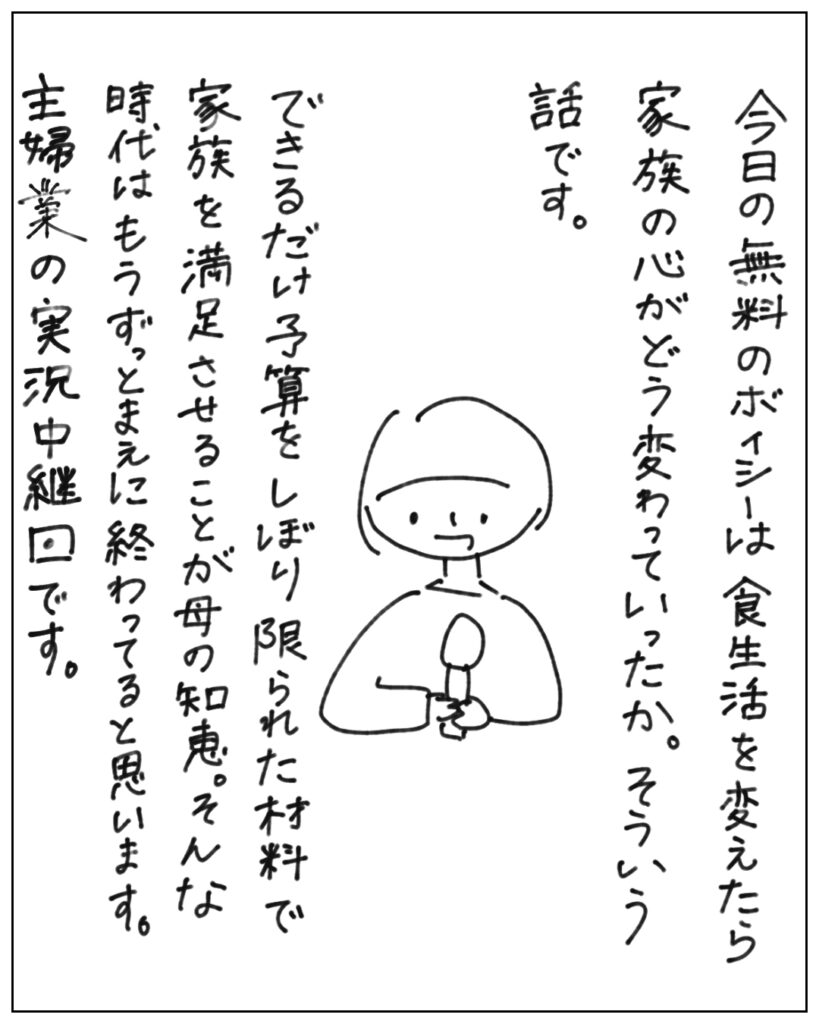 今日の無料のボイシーは食生活を変えたら
家族の心がどう変わっていったか。そういう
話です。
できるだけ予算をしぼり限られた材料で
家族を満足させることが母の知恵。そんな
時代はもうずっとまえに終わってると思います。
主婦業の実況中継回です。